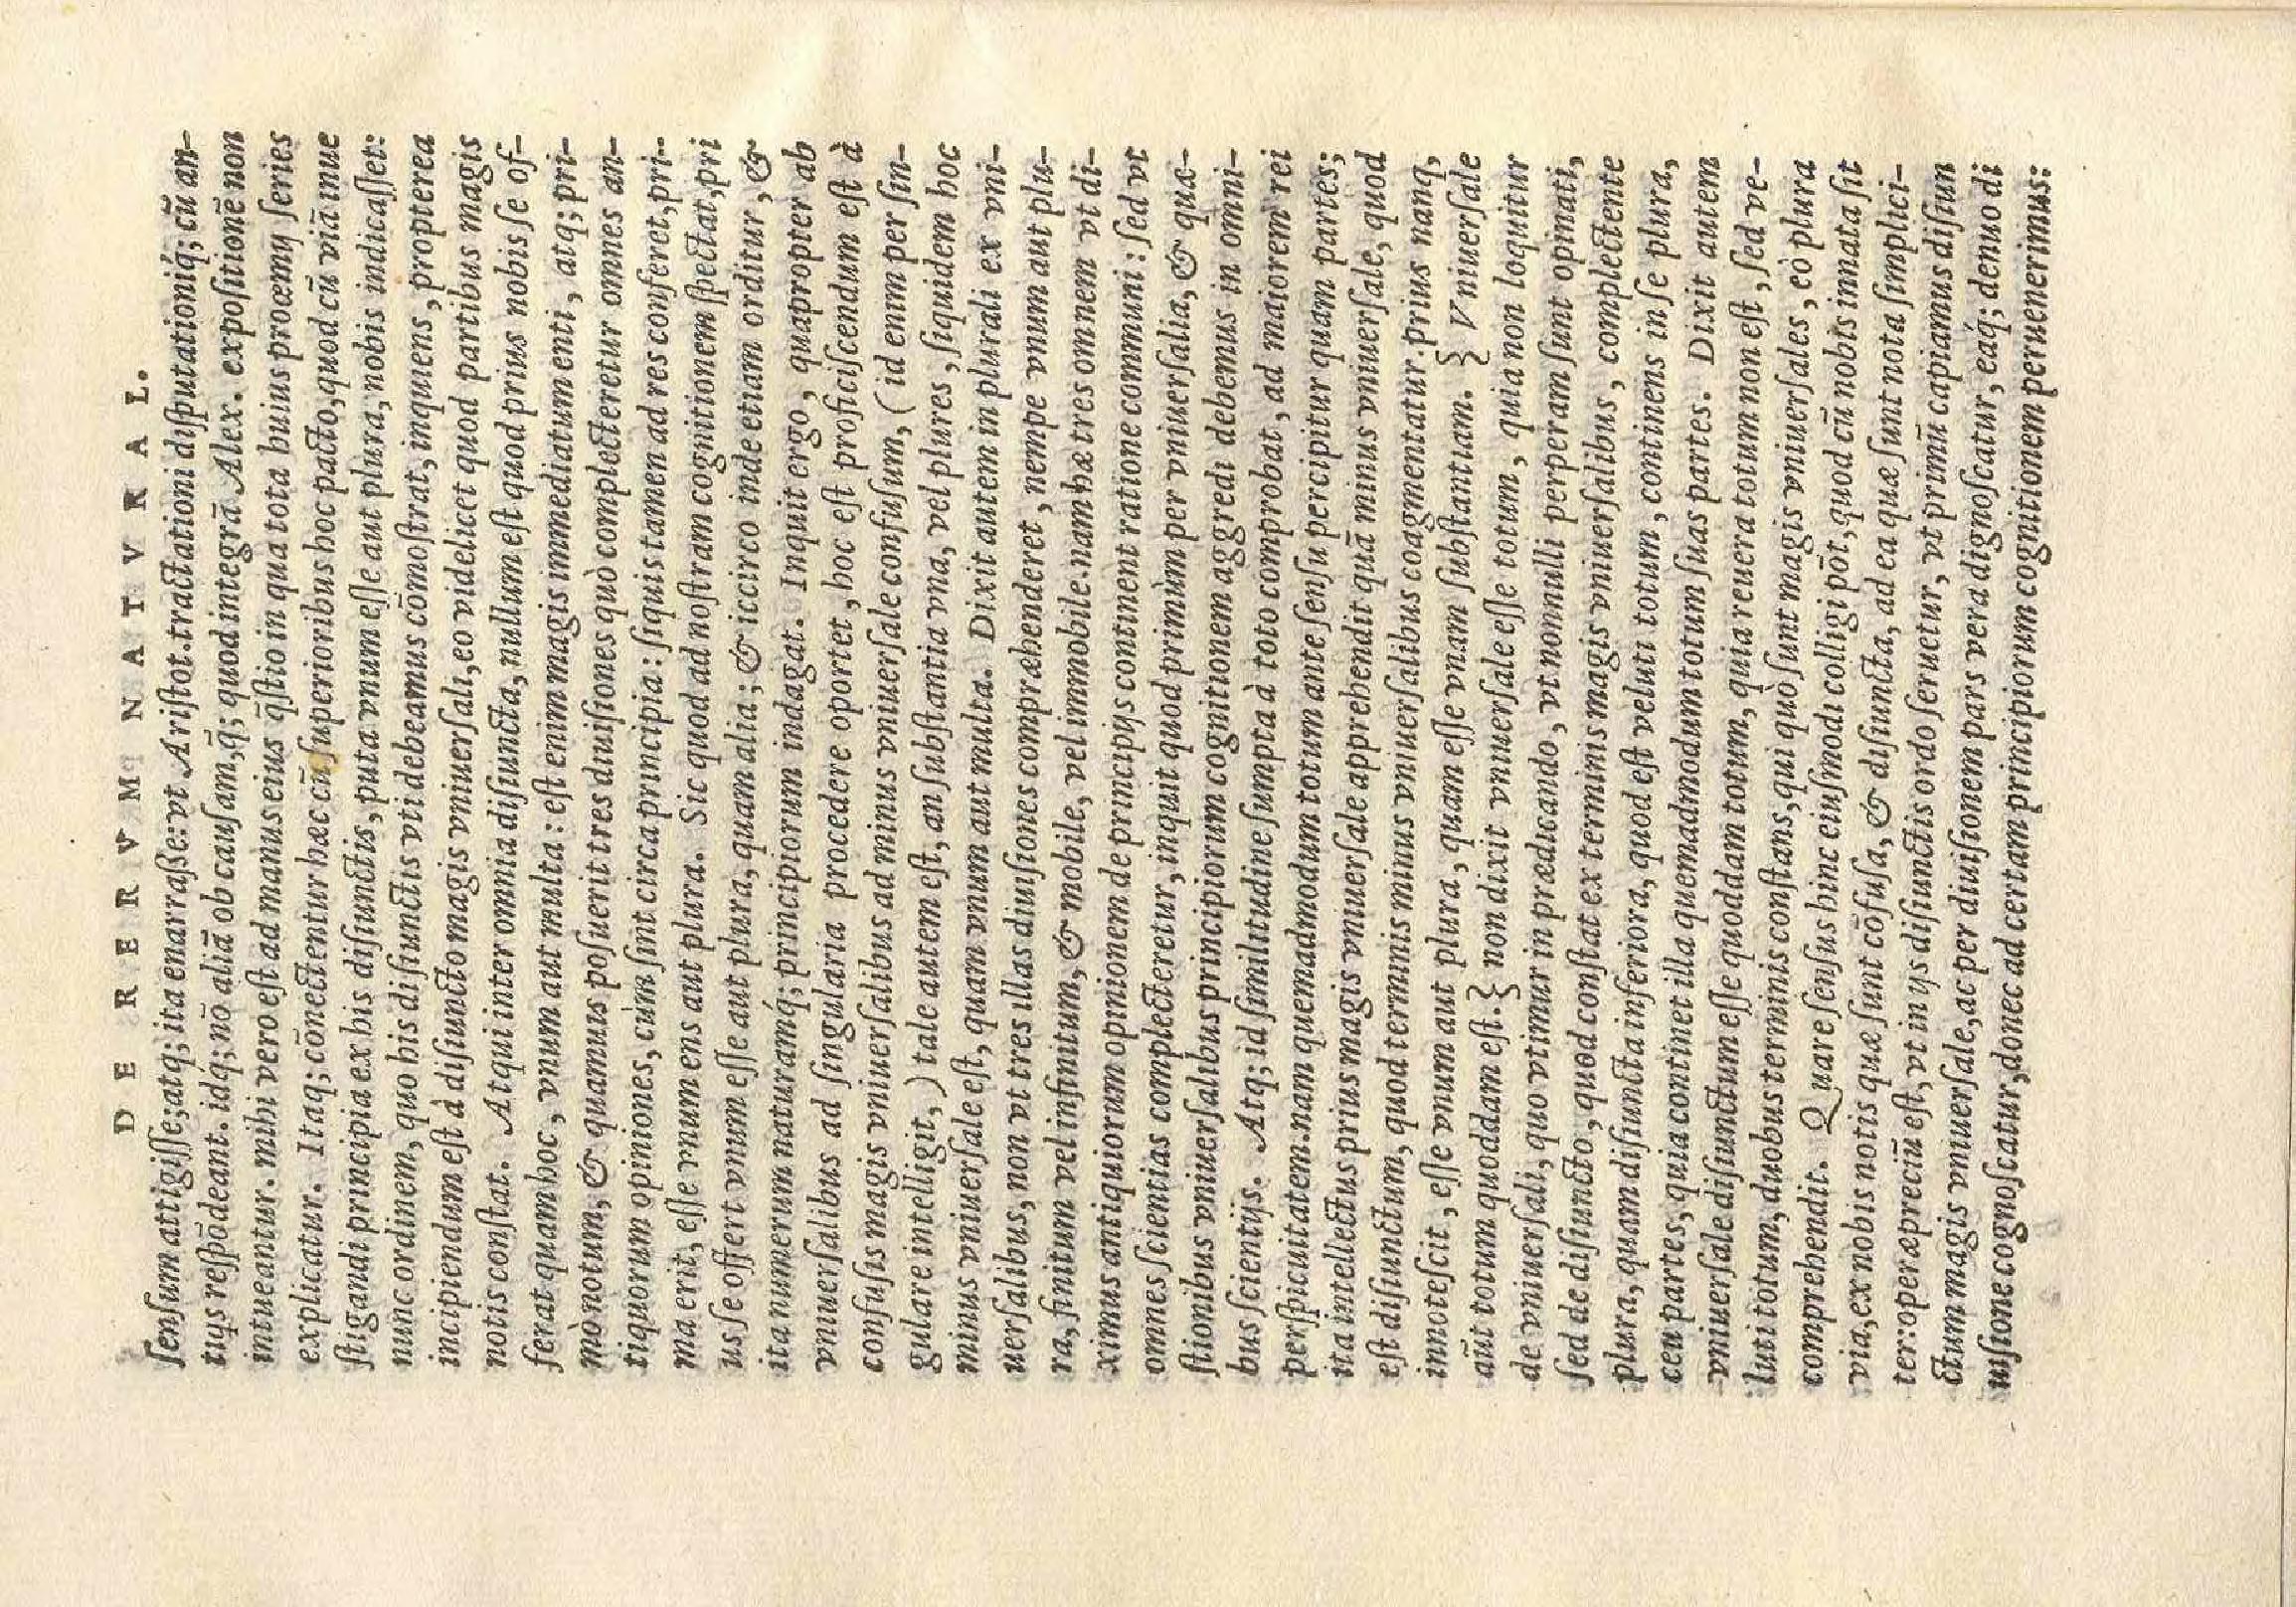 D E R E R V M N A T V R A L.
ſenſum attigiſſe; atq; ita enarraße: vt Ariſtot. tractationi diſputationiq́; cū an-
tiys reſpōdeant. idq́; nō aliā ob cauſam, q̄; quod integrā Alex. expoſitionē non
intueantur. mihi vero eſt ad manus eius q̄ſtio in qua tota huius proœmy ſeries
explicatur. Itaq; cōnectentur hæc cū ſuperioribus hoc pacto, quod cū viā inue
ſtigandi principia ex his diſiunctis, puta vnum eſſe aut plura, nobis indicaſſet:
nunc ordinem, quo his diſiunctis vti debeamus cōmoſtrat, inquiens, propterea
incipiendum eſt à diſiuncto magis vniuerſali, eo videlicet quod partibus magis
notis conſtat. Atqui inter omnia diſiuncta, nullum eſt quod prius nobis ſe of-
ferat quam hoc, vnum aut multa: eſt enim magis immediatum enti, atq; pri-
mò notum, & quamuis poſuerit tres diuiſiones quò complecteretur omnes an-
tiquorum opiniones, cùm ſint circa principia: ſiquis tamen ad res conferet, pri-
ma erit, eſſe vnum ens aut plura. Sic quod ad noſtram cognitionem ſpectat, pri
us ſe offert vnum eſſe aut plura, quam alia; & iccirco inde etiam orditur, &
ita numerum naturamq́; principiorum indagat. Inquit ergo, quapropter ab
vniuerſalibus ad ſingularia procedere oportet, hoc eſt proficiſcendum eſt à
confuſis magis vniuerſalibus ad minus vniuerſale confuſum, (id enim per ſin-
gulare intelligit,) tale autem eſt, an ſubſtantia vna, vel plures, ſiquidem hoc
minus vniuerſale eſt, quam vnum aut multa. Dixit autem in plurali ex vni-
uerſalibus, non vt tres illas diuiſiones compræhenderet, nempe vnum aut plu-
ra, finitum vel infinitum, & mobile, vel immobile. nam hæ tres omnem vt di-
ximus antiquiorum opinionem de principys continent ratione communi: ſed vt
omnes ſcientias complecteretur, inquit quod primùm per vniuerſalia, & quæ-
ſtionibus vniuerſalibus principiorum cognitionem aggredi debemus in omni-
bus ſcientijs. Atq; id ſimilitudine ſumpta à toto comprobat, ad maiorem rei
perſpicuitatem. nam quemadmodum totum ante ſenſu percipitur quam partes;
ita intellectus prius magis vniuerſale apprehendit quā minus vniuerſale, quod
eſt diſiunctum, quod terminis minus vniuerſalibus coagmentatur. prius nanq,
innoteſcit, eſſe vnum aut plura, quam eſſe vnam ſubſtantiam. } Vniuerſale
aūt totum quoddam eſt. } non dixit vniuerſale eſſe totum, quia non loquitur
de vniuerſali, quo vtimur in prædicando, vt nonnulli perperam ſunt opinati,
ſed de diſiuncto, quod conſtat ex terminis magis vniuerſalibus, complectente
plura, quam diſiuncta inferiora, quod eſt veluti totum, continens in ſe plura,
ceu partes, quia continet illa quemadmodum totum ſuas partes. Dixit autem
vniuerſale diſiunctum eſſe quoddam totum, quia reuera totum non eſt, ſed ve-
luti totum, duobus terminis conſtans, qui quò ſunt magis vniuerſales, eò plura
comprehendit. Quare ſenſus hinc eiuſmodi colligi pōt, quod cū nobis innata ſit
via, ex nobis notis quæ ſunt cōfuſa, & diſiuncta, ad ea quæ ſunt nota ſimplici-
ter: operæpreciū eſt, vt in ys diſiunctis ordo ſeruetur, vt primū capiamus diſiun
ctum magis vniuerſale, ac per diuiſionem pars vera dignoſcatur, eaq́; denuo di
uiſione cognoſcatur, donec ad certam principiorum cognitionem peruenerimus: